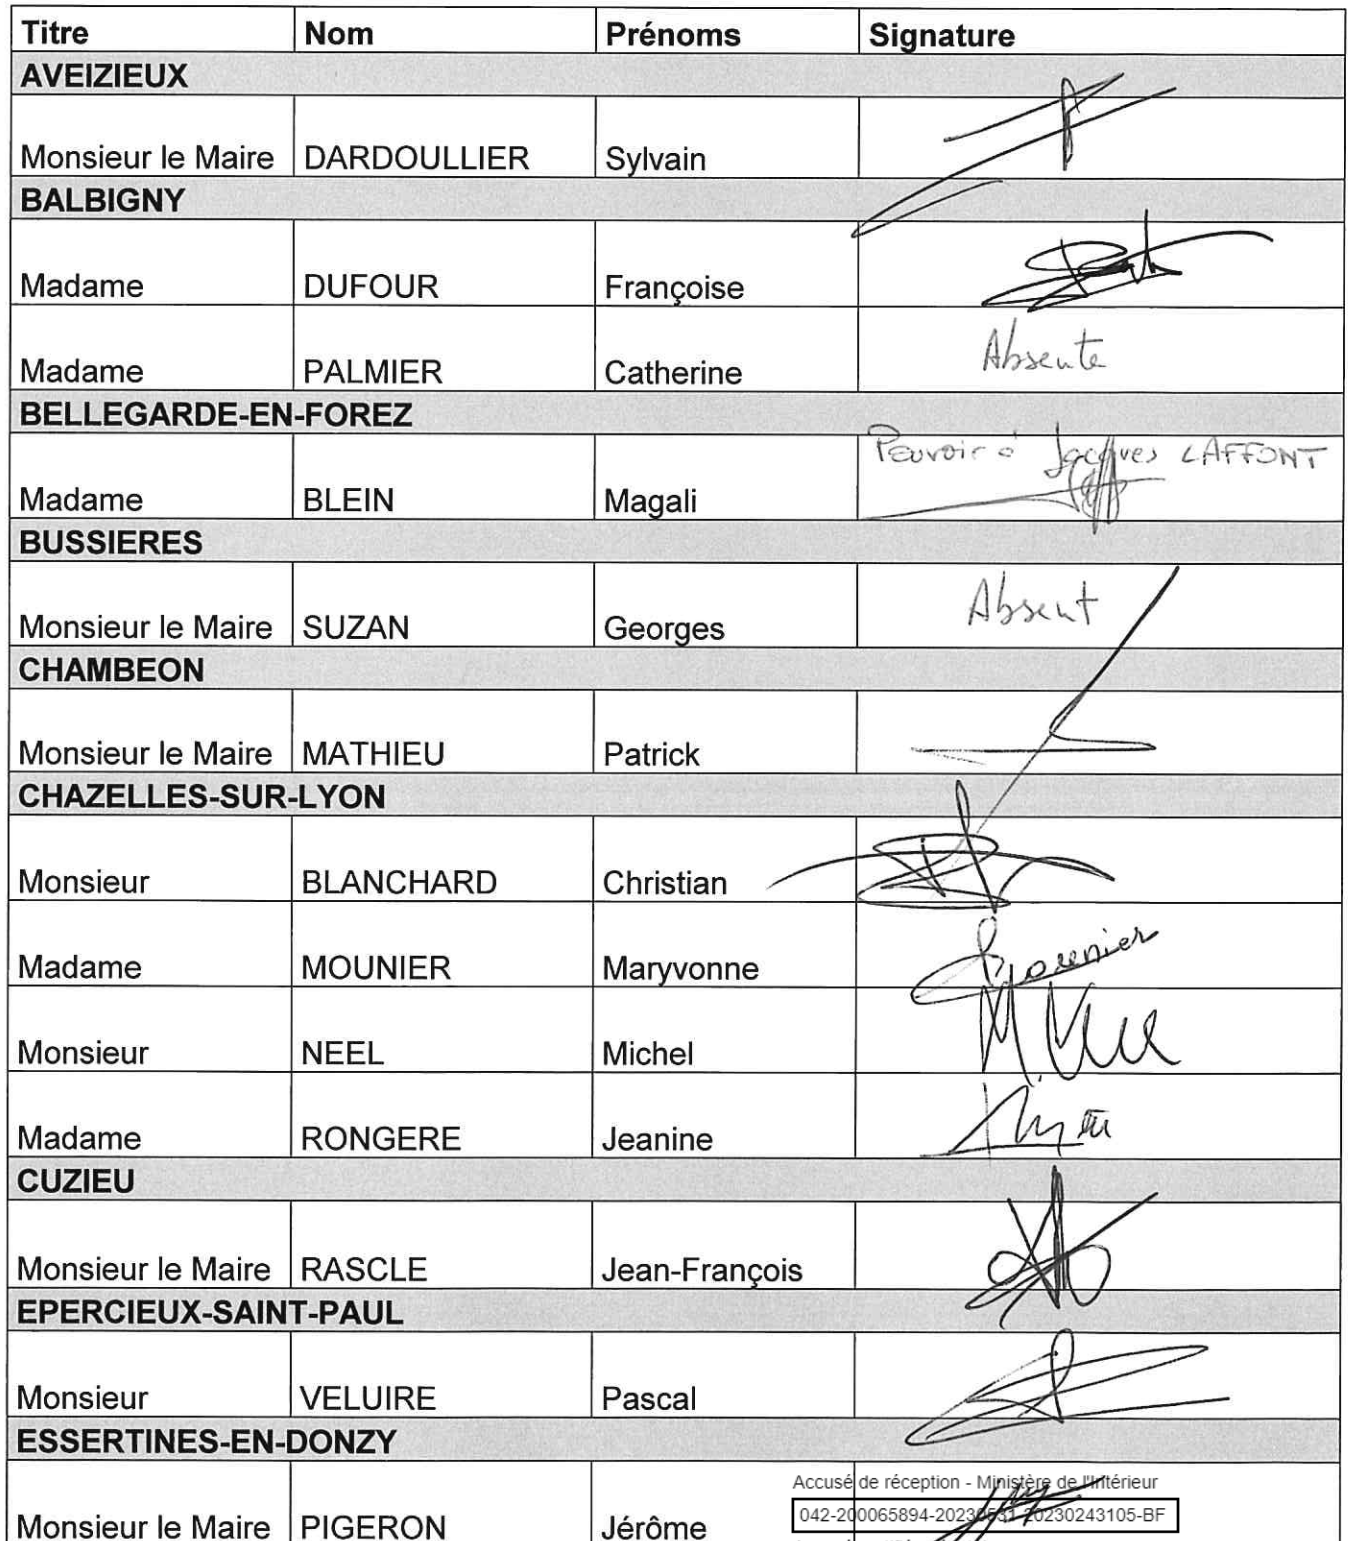 Titre Nom Prénoms Signature
AVEIZIEUX
Monsieur le Maire DARDOULLIER Sylvain
BALBIGNY
Madame DUFOUR Françoise
Madame PALMIER Catherine Absente
BELLEGARDE-EN-FOREZ
Pouvoir à Jacques LAFFONT
Madame BLEIN Magali
BUSSIERES
Monsieur le Maire SUZAN Georges Absent
CHAMBEON
Monsieur le Maire MATHIEU Patrick
CHAZELLES-SUR-LYON
Monsieur BLANCHARD Christian
Madame MOUNIER Maryvonne Mounier
Monsieur NEEL Michel
Madame RONGERE Jeanine
CUZIEU
Monsieur le Maire RASCLE Jean-François
EPERCIEUX-SAINT-PAUL
Monsieur VELUIRE Pascal
ESSERTINES-EN-DONZY
Accusé de réception - Ministère de l'Intérieur
042-200065894-20230531-20230243105-BF
Monsieur le Maire PIGERON Jérôme